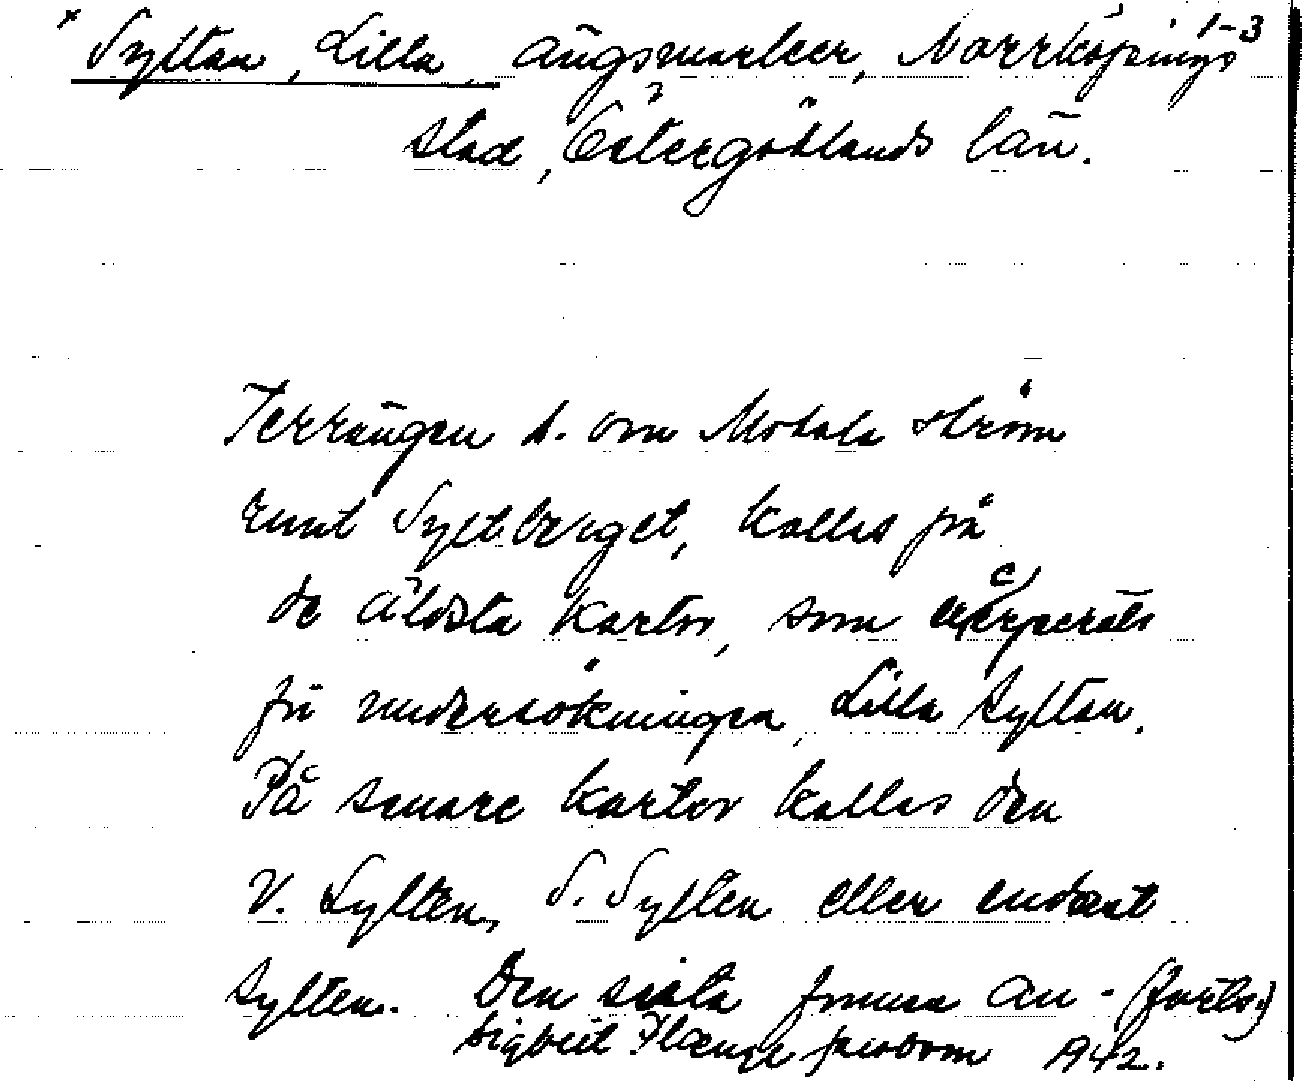 × Syltan, Lilla ängsmarker, Norrköpings 1-3
stad, Östergötlands län.
Terrängen s. om Motala ström
runt Syltberget, kallas på
de äldsta kartor, som
på undersökningen, Lilla Syltan.
På senare kartor kallas den
V. Sylten, S. Sylten eller endast
Sylten. Den sista formen än - (forts.)
Sigbrit 1942.